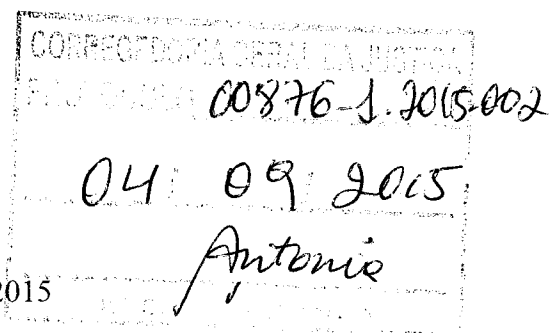 CORREGEDORIA GERAL DA JUSTIÇA
00876-1.2015.002
04 09 2015
Antonia
2015